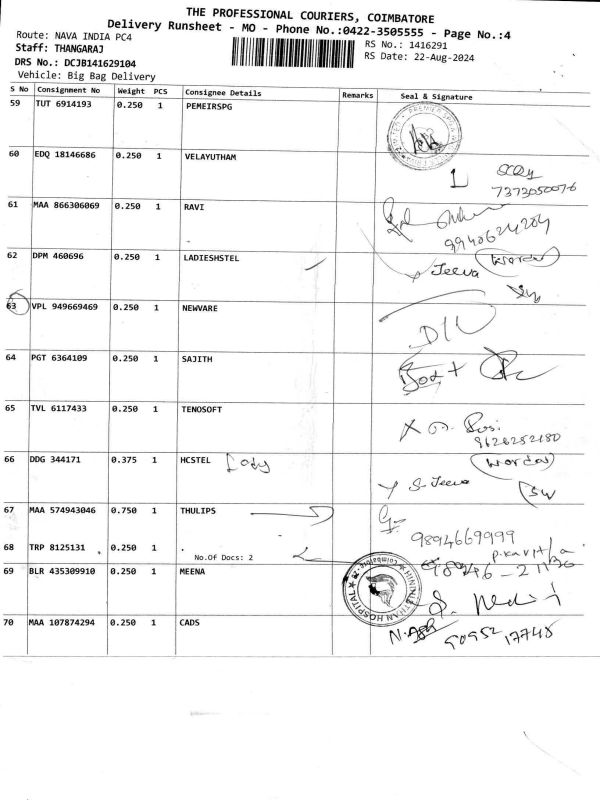 THE PROFESSIONAL COURIERS, COIMBATORE
Delivery Runsheet - MO - Phone No.:0422-3505555 - Page No.:4
Route: NAVA INDIA PC4
RS No.: 1416291
Staff: THANGARAJ
RS Date: 22-Aug-2024
DRS No.: DCJB141629104
Vehicle: Big Bag Delivery
S No Consignment No Weight PCS Consignee Details Remarks Seal & Signature
59 TUT 6914193 0.250 1 PEMEIRSPG
60 EDQ 18146686 0.250 1 VELAYUTHAM
7373050076
61 MAA 866306069 0.250 1 RAVI
9940624204
62 DPM 460696 0.250 1 LADIESHSTEL
Jeeva
63 VPL 949669469 0.250 1 NEWVARE
64 PGT 6364109 0.250 1 SAJITH
65 TVL 6117433 0.250 1 TENOSOFT
9626252180
66 DDG 344171 0.375 1 HCSTEL Lady
S. Jeeva
67 MAA 574943046 0.750 1 THULIPS
9894669999
68 TRP 8125131 0.250 1
No.Of Docs: 2
P.Kavitha
69 BLR 435309910 0.250 1 MEENA
HINDUSTHAN HOSPITAL
70 MAA 107874294 0.250 1 CADS
90952 17748